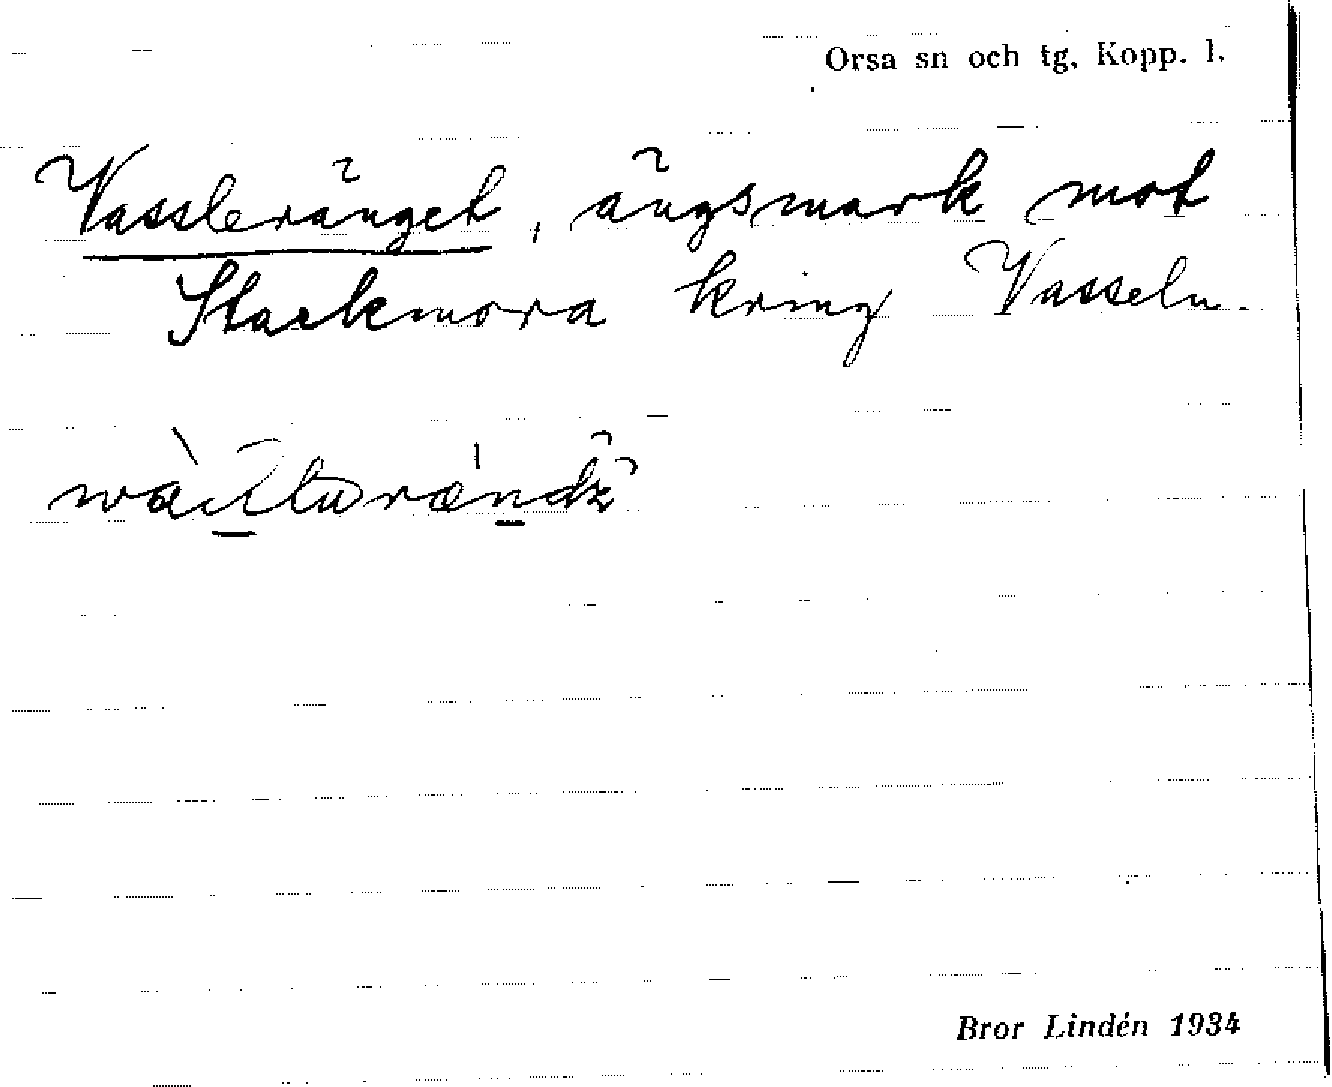 Orsa sn och tg, Kopp. l.
Vassleränget, ängsmark mot
Stackmora kring Vasseln.
Bror Lindén 1934